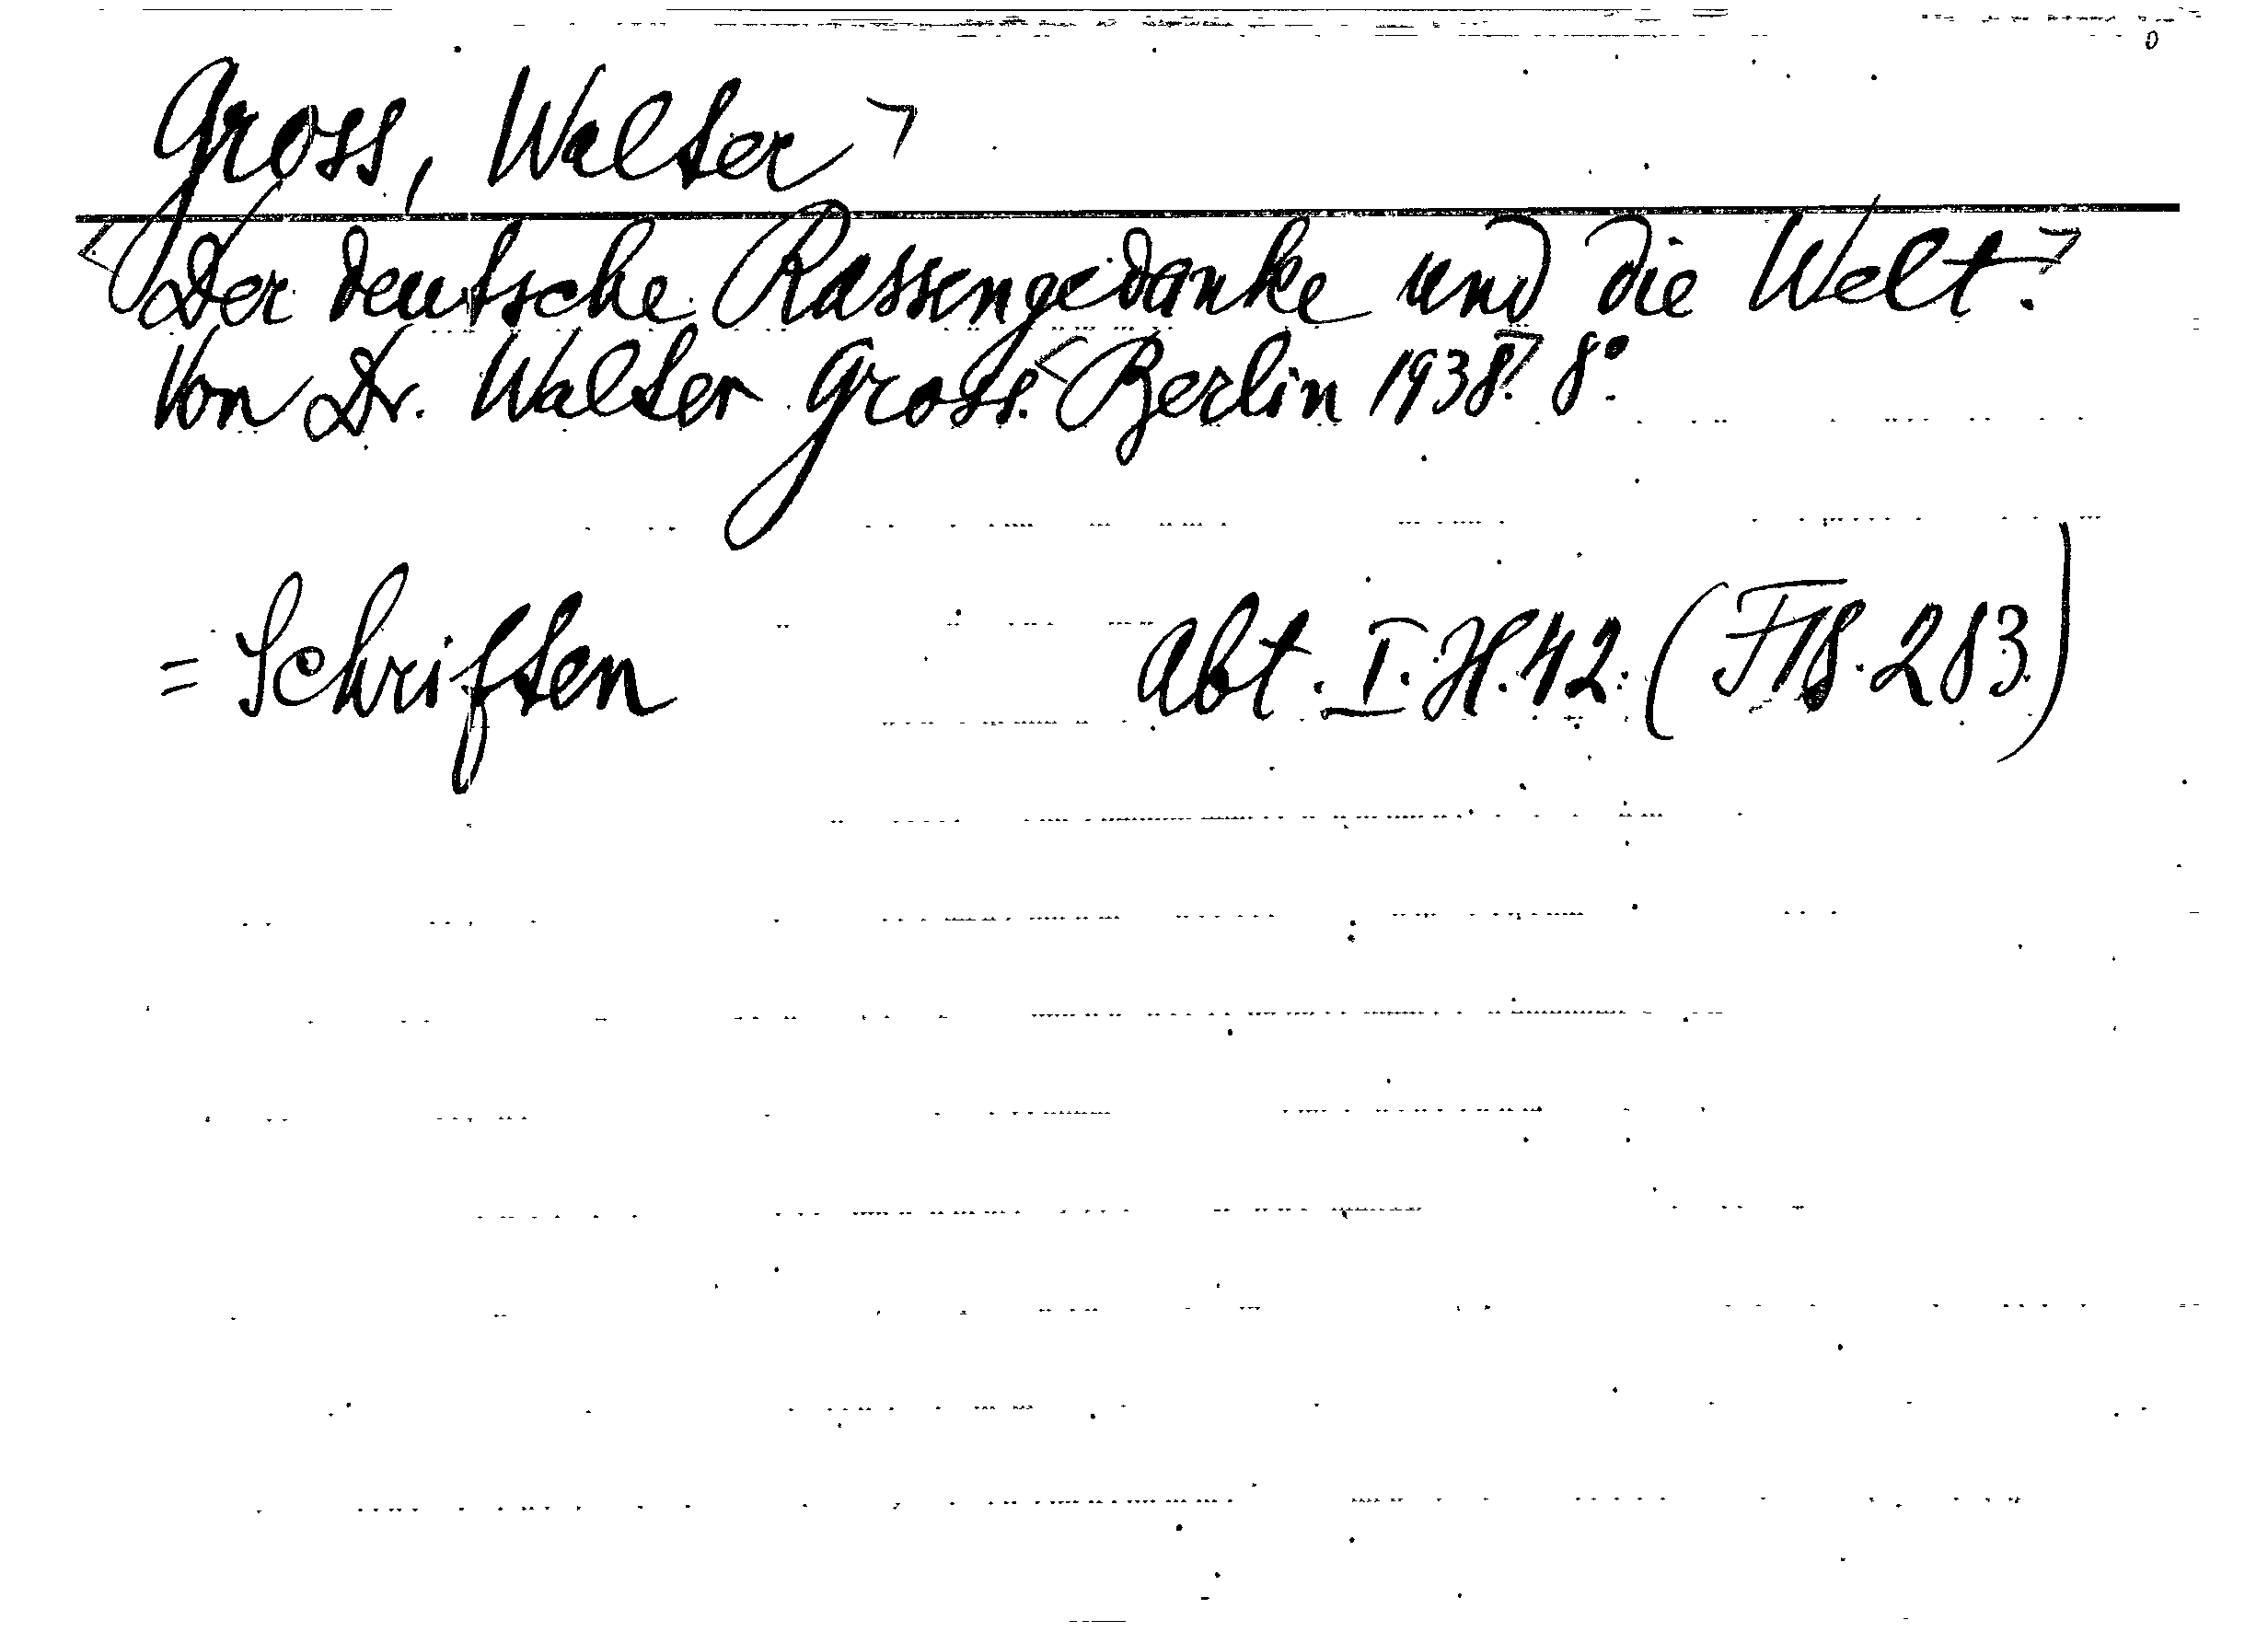 Gross, Walter
Der deutsche Rassengedanke und die Welt.
Von Dr. Walter Gross. Berlin 1938. 8°.
= Schriften Abt. I. H. 42. (F18.283)